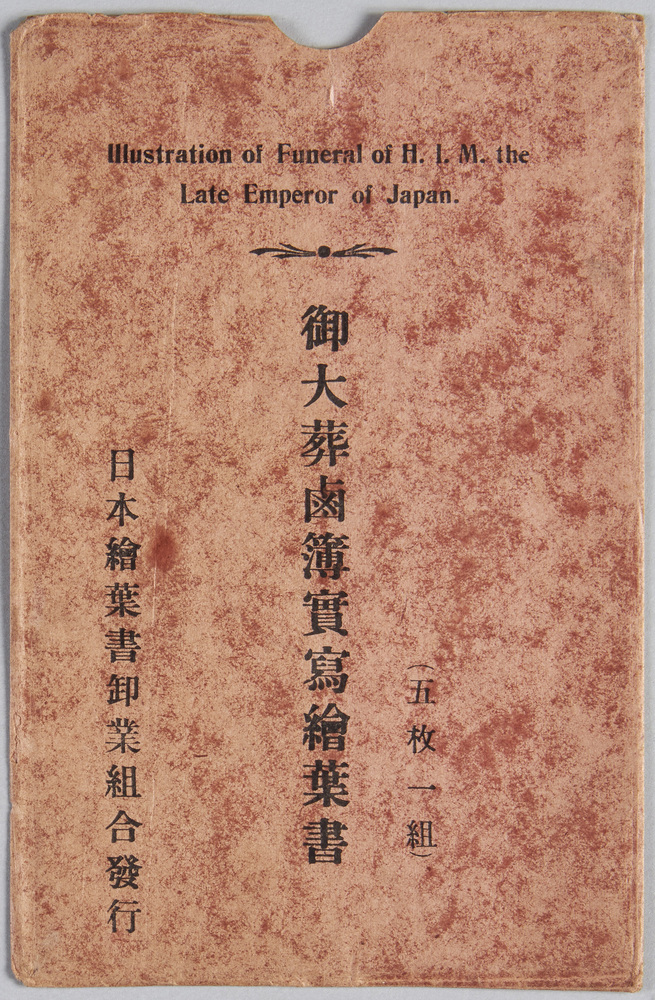 Illustration of Funeral of H. I. M. the
Late Emperor of Japan.
(五枚一組)
御大葬鹵簿實寫繪葉書
日本繪葉書卸業組合發行